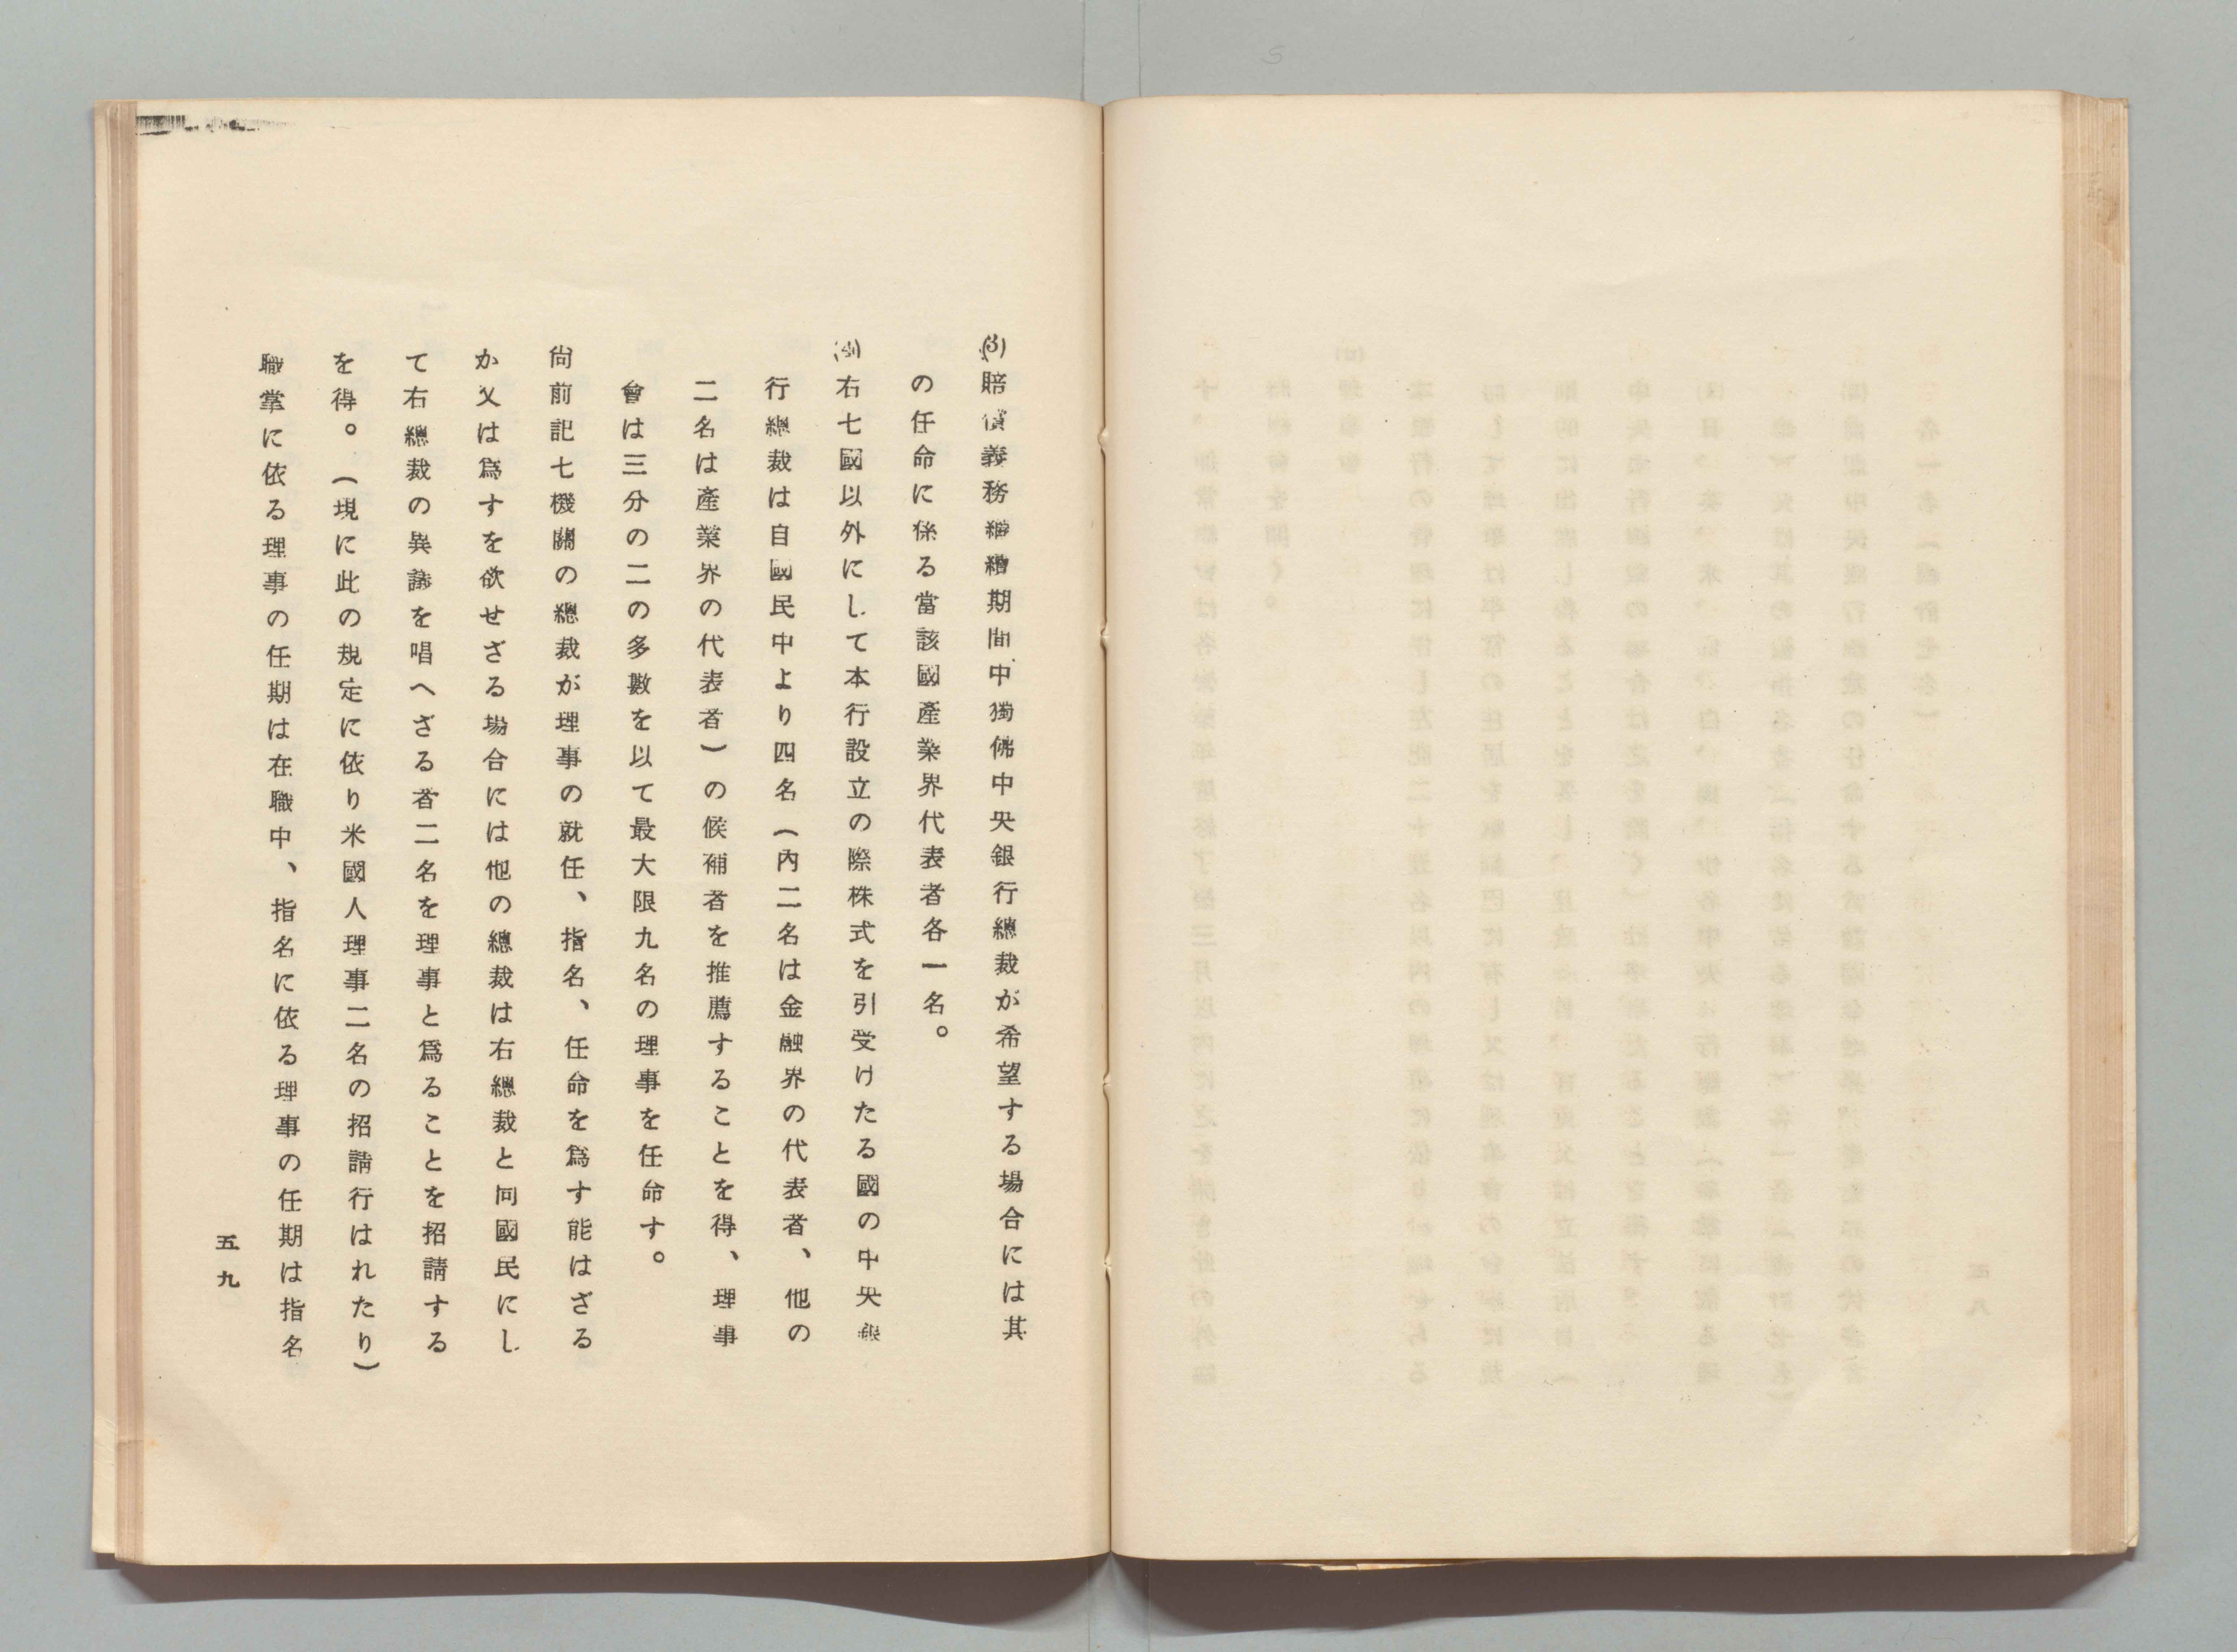 (3)賠償義務繼續期間中獨佛中央銀行總裁が希望する場合には其
の任命に係る當該國產業界代表者各一名。
(4)右七國以外にして本行設立の際株式を引受けたる國の中央銀
行總裁は自國民中より四名(內二名は金融界の代表者、他の
二名は產業界の代表者)の候補者を推薦することを得、理事
會は三分の二の多數を以て最大限九名の理事を任命す。
尙前記七機關の總裁が理事の就任、指名、任命を爲す能はざる
か又は爲すを欲せざる場合には他の總裁は右總裁と同國民にし
て右總裁の異議を唱へざる者二名を理事と爲ることを招請する
を得。(現に此の規定に依り米國人理事二名の招請行はれたり)
職掌に依る理事の任期は在職中、指名に依る理事の任期は指名
五九